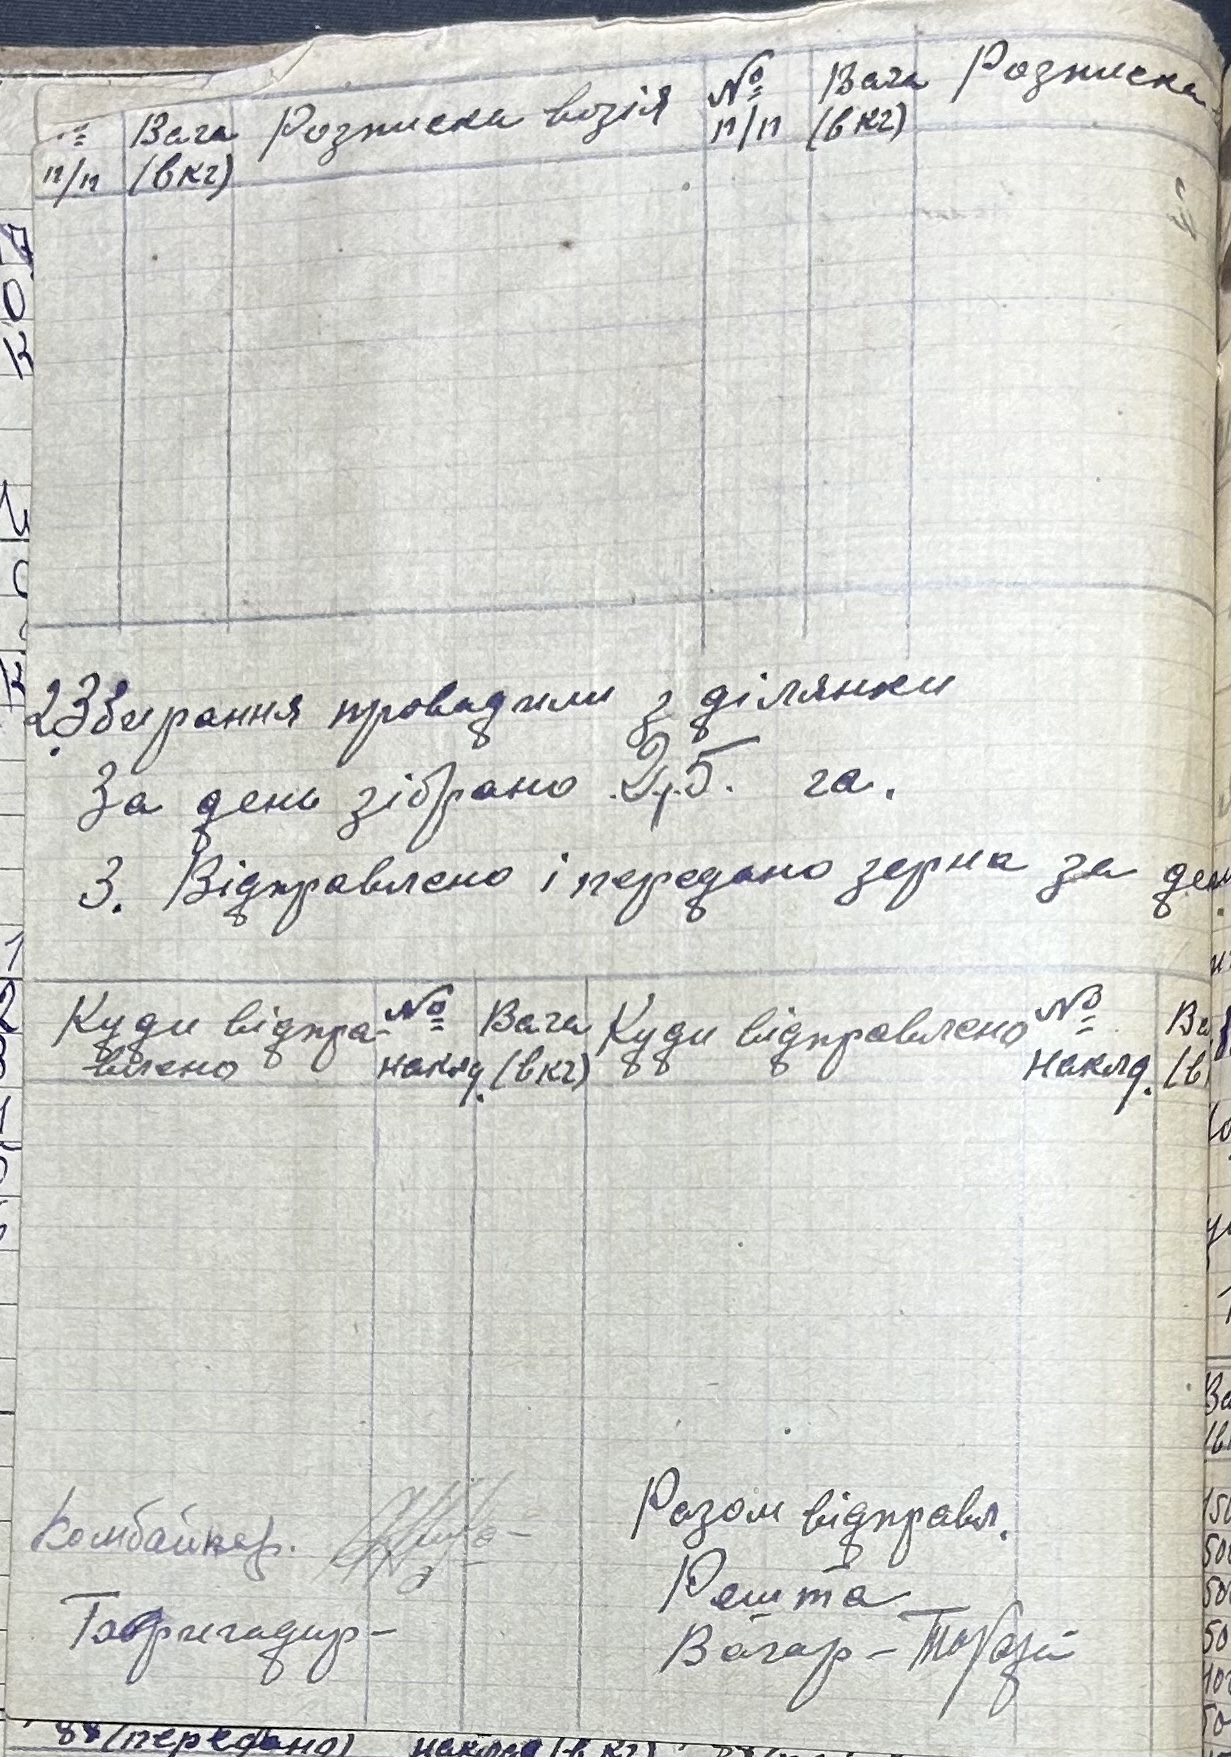 № п/п Вага (вкг) Розписка возія № п/п Вага (вкг) Розписка
2. Збирання провадили з ділянки
За день зібрано 2,5. га.
3. Відправлено і передано зерна за день
Куди відправлено № наклд. Вага (вкг) Куди відправлено № наклд. Ва (в
Комбайнер.
Разом відправл.
Решта
Бригадир-
Вагар –
88 (передано) наклад (в кг)